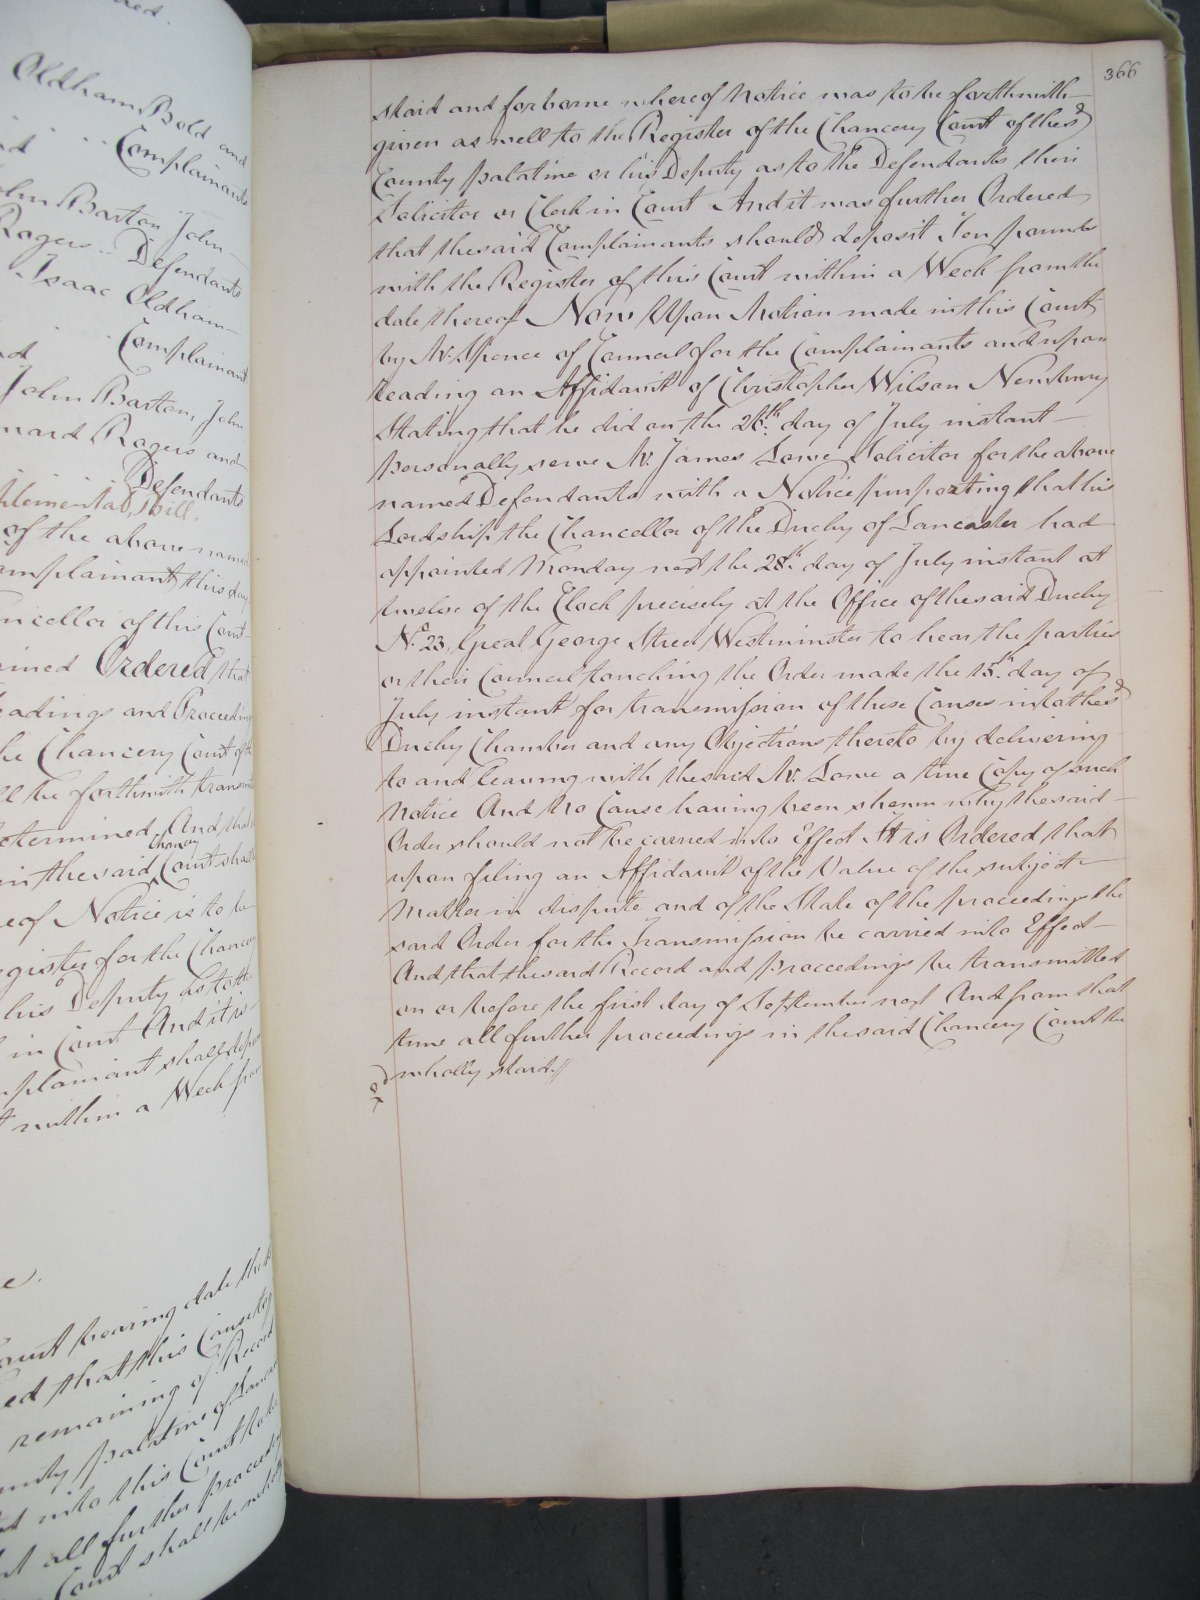 ered.
Oldham Bold and
Complainants
John Barton John
Rogers Defendants
Isaac Oldham
Complainant
John Barton, John
Rogers and
Defendants
Supplemental Bill.
of the above named
Complainant this day
Chancellor of this Court
Ordered that
Pleadings and Proceedings
the Chancery Court of the
be forthwith transmitted
determined, And that
Chancery
in the said Court shall
Notice is to be
Register for the Chancery
his Deputy as to the
in Court And it is
Complainant shall deposit
within a Week from
Court bearing date the
ed that this Cause
remaining of Record
County palatine of Lancaster
into this Court
all further proceedings
Court shall be wholly
366
staid and forborne whereof Notice was to be forthwith
given as well to the Register of the Chancery Court of the sd
County palatine or his Deputy as to the Defendants their
Solicitor or Clerk in Court And it was further Ordered
that the said Complainants should deposit Ten pounds
with the Register of this Court within a Week from the
date thereof Now Upon Motion made in this Court
by Mr. Spence of Council for the Complainants and upon
reading an Affidavit of Christopher Wilson Newberry
Stating that he did on the 26th. day of July instant
personally serve Mr. James Lowe Solicitor for the above
named Defendants with a Notice purporting that his
Lordship the Chancellor of the Duchy of Lancaster had
appointed Monday next the 28th. day of July instant at
twelve of the Clock precisely at the Office of the said Duchy
No. 23, Great George Street Westminster to hear the parties
or their Council touching the Order made the 15th. day of
July instant for transmission of these Causes into the sd
Duchy Chamber and any Objections thereto by delivering
to and leaving with the said Mr. Lowe a true Copy of such
Notice And no Cause having been shewn why the said
Order should not be carried into Effect It is Ordered that
upon filing an Affidavit of the Value of the subject
Matter in dispute and of the State of the proceedings the
said Order for the Transmission be carried into Effect
And that the said Record and proceedings be transmitted
on or before the first day of September next And from that
time all further proceedings in the said Chancery Court be
wholly staid.